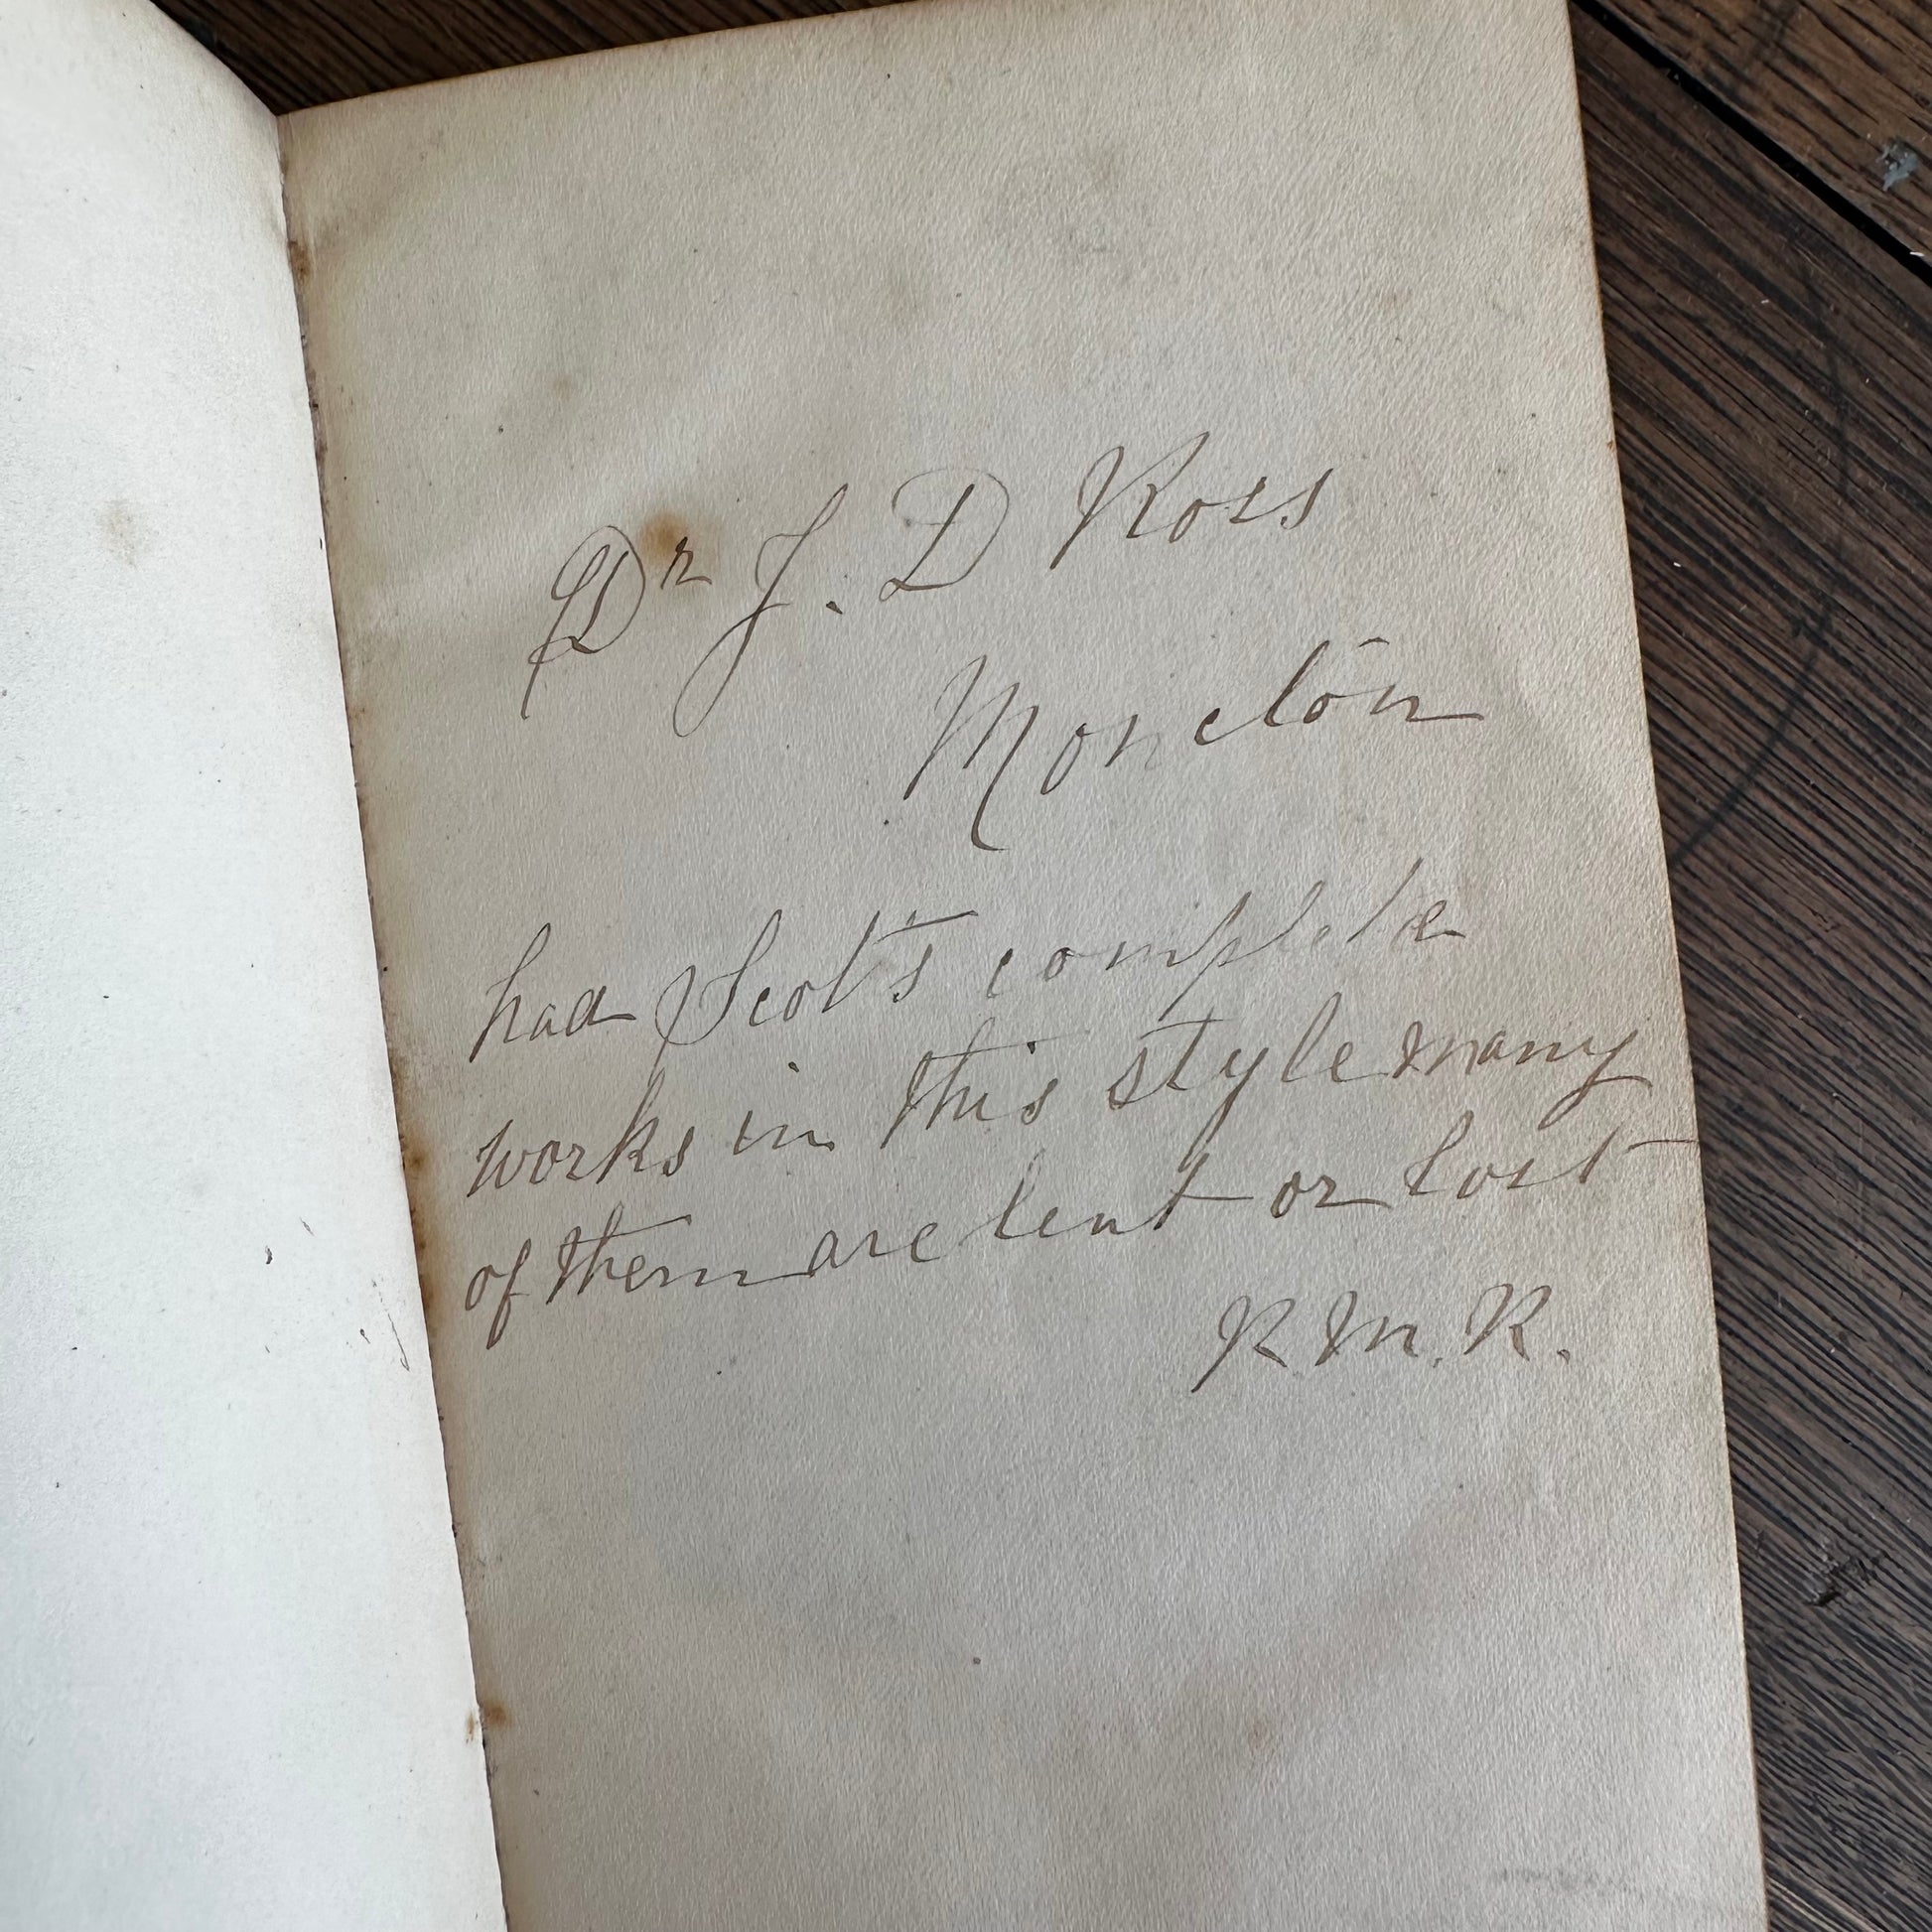 Dr J. D Ross
Moncton
had Scott's complete
works in this style many
of them are lent or lost
R M. R.